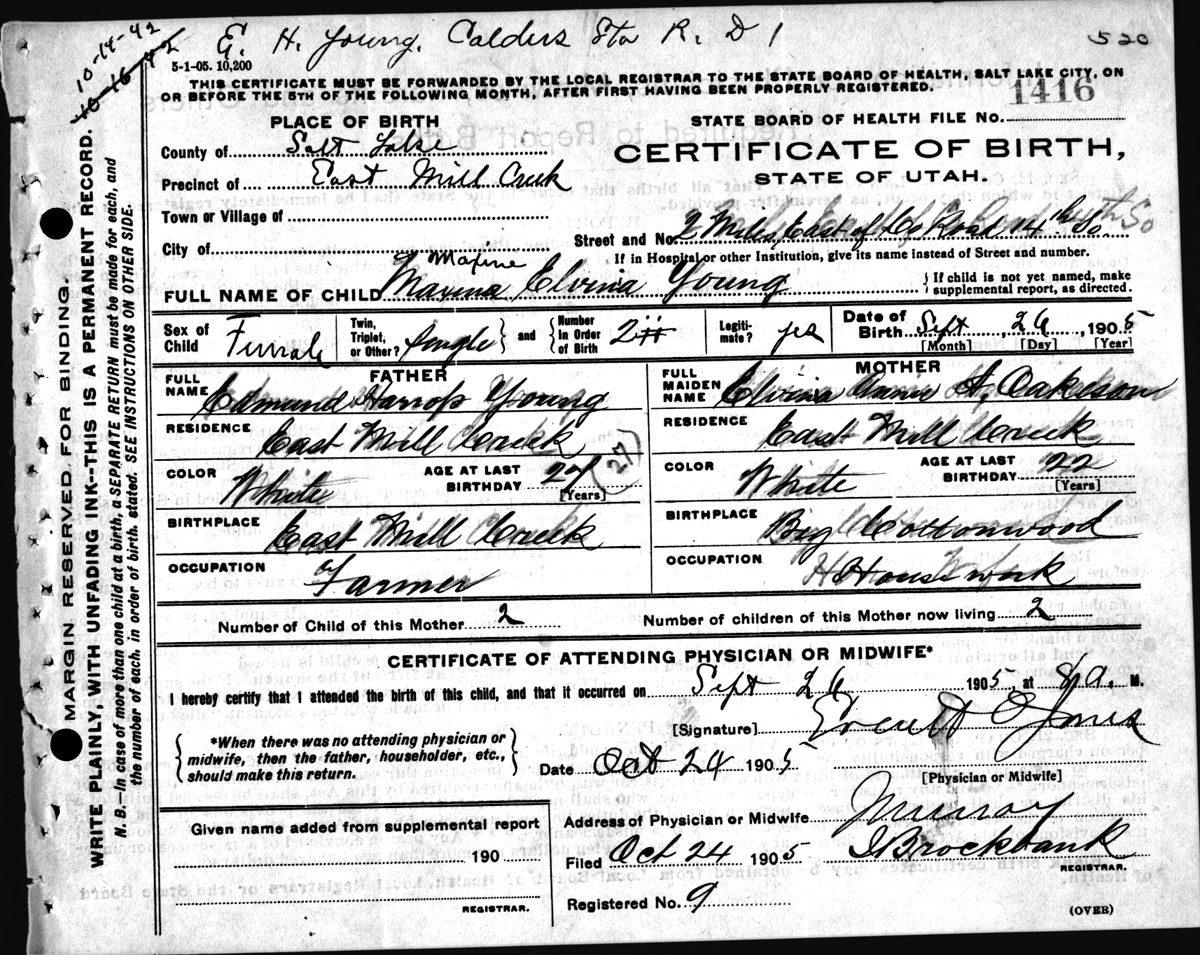 10-14-42
10-16-42
E. H. Young, Calders Sta R. D 1
520
5-1-05. 10,200
THIS CERTIFICATE MUST BE FORWARDED BY THE LOCAL REGISTRAR TO THE STATE BOARD OF HEALTH, SALT LAKE CITY, ON
OR BEFORE THE 5TH OF THE FOLLOWING MONTH, AFTER FIRST HAVING BEEN PROPERLY REGISTERED.
1416
PLACE OF BIRTH
STATE BOARD OF HEALTH FILE NO.
County of Salt Lake
CERTIFICATE OF BIRTH,
Precinct of East Mill Creek
STATE OF UTAH.
Town or Village of
Street and No. 2 Miles East of Co Road 14th So
City of
If in Hospital or other Institution, give its name instead of Street and number.
Maxine
FULL NAME OF CHILD Maxina Elvina Young
{If child is not yet named, make
supplemental report, as directed.
Sex of Child Female
Twin, Triplet, or Other? Single } and { Number In Order of Birth 2
Legitimate? yes
Date of Birth Sept, 26, 1905
[Month] [Day] [Year]
FATHER
MOTHER
FULL NAME Edmund Harrop Young
FULL MAIDEN NAME Elvina Anna A. Oakeson
RESIDENCE East Mill Creek
RESIDENCE East Mill Creek
COLOR White
AGE AT LAST BIRTHDAY 27 (27)
[Years]
COLOR White
AGE AT LAST BIRTHDAY 22
[Years]
BIRTHPLACE East Mill Creek
BIRTHPLACE Big Cottonwood
OCCUPATION Farmer
OCCUPATION House work
Number of Child of this Mother 2
Number of children of this Mother now living 2
CERTIFICATE OF ATTENDING PHYSICIAN OR MIDWIFE*
I hereby certify that I attended the birth of this child, and that it occurred on Sept 26 1905, at 8 a. M.
{*When there was no attending physician or
midwife, then the father, householder, etc.,
should make this return.}
[Signature] Everett O Jones
Date Oct 24 1905
[Physician or Midwife]
Given name added from supplemental report
190
REGISTRAR.
Address of Physician or Midwife Murray
Filed Oct 24 1905
I Brockbank
REGISTRAR.
Registered No. 9
(OVER)
MARGIN RESERVED FOR BINDING.
WRITE PLAINLY, WITH UNFADING INK--THIS IS A PERMANENT RECORD.
N. B.—In case of more than one child at a birth, a SEPARATE RETURN must be made for each, and
the number of each, in order of birth, stated. SEE INSTRUCTIONS ON OTHER SIDE.